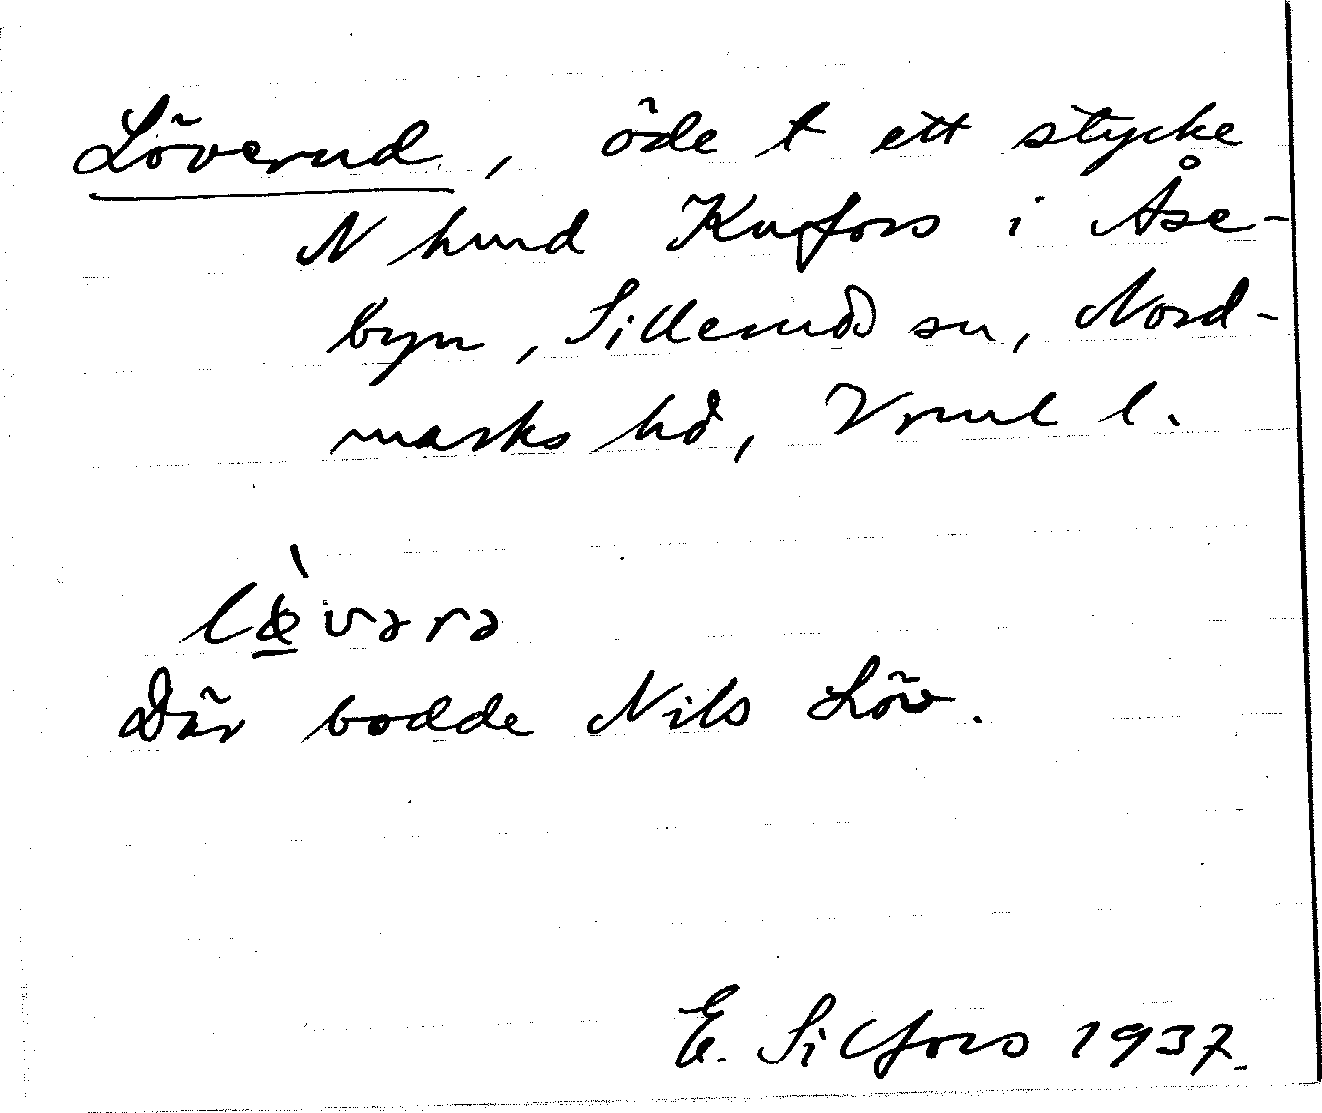 Löverud, öde t ett stycke
N hmd Kufors i Åse-
byn, Sillerud sn, Nord-
marks hd, Vrml l.
lœ̠̀vərə
Där bodde Nils Löv.
E. Silfors 1937.